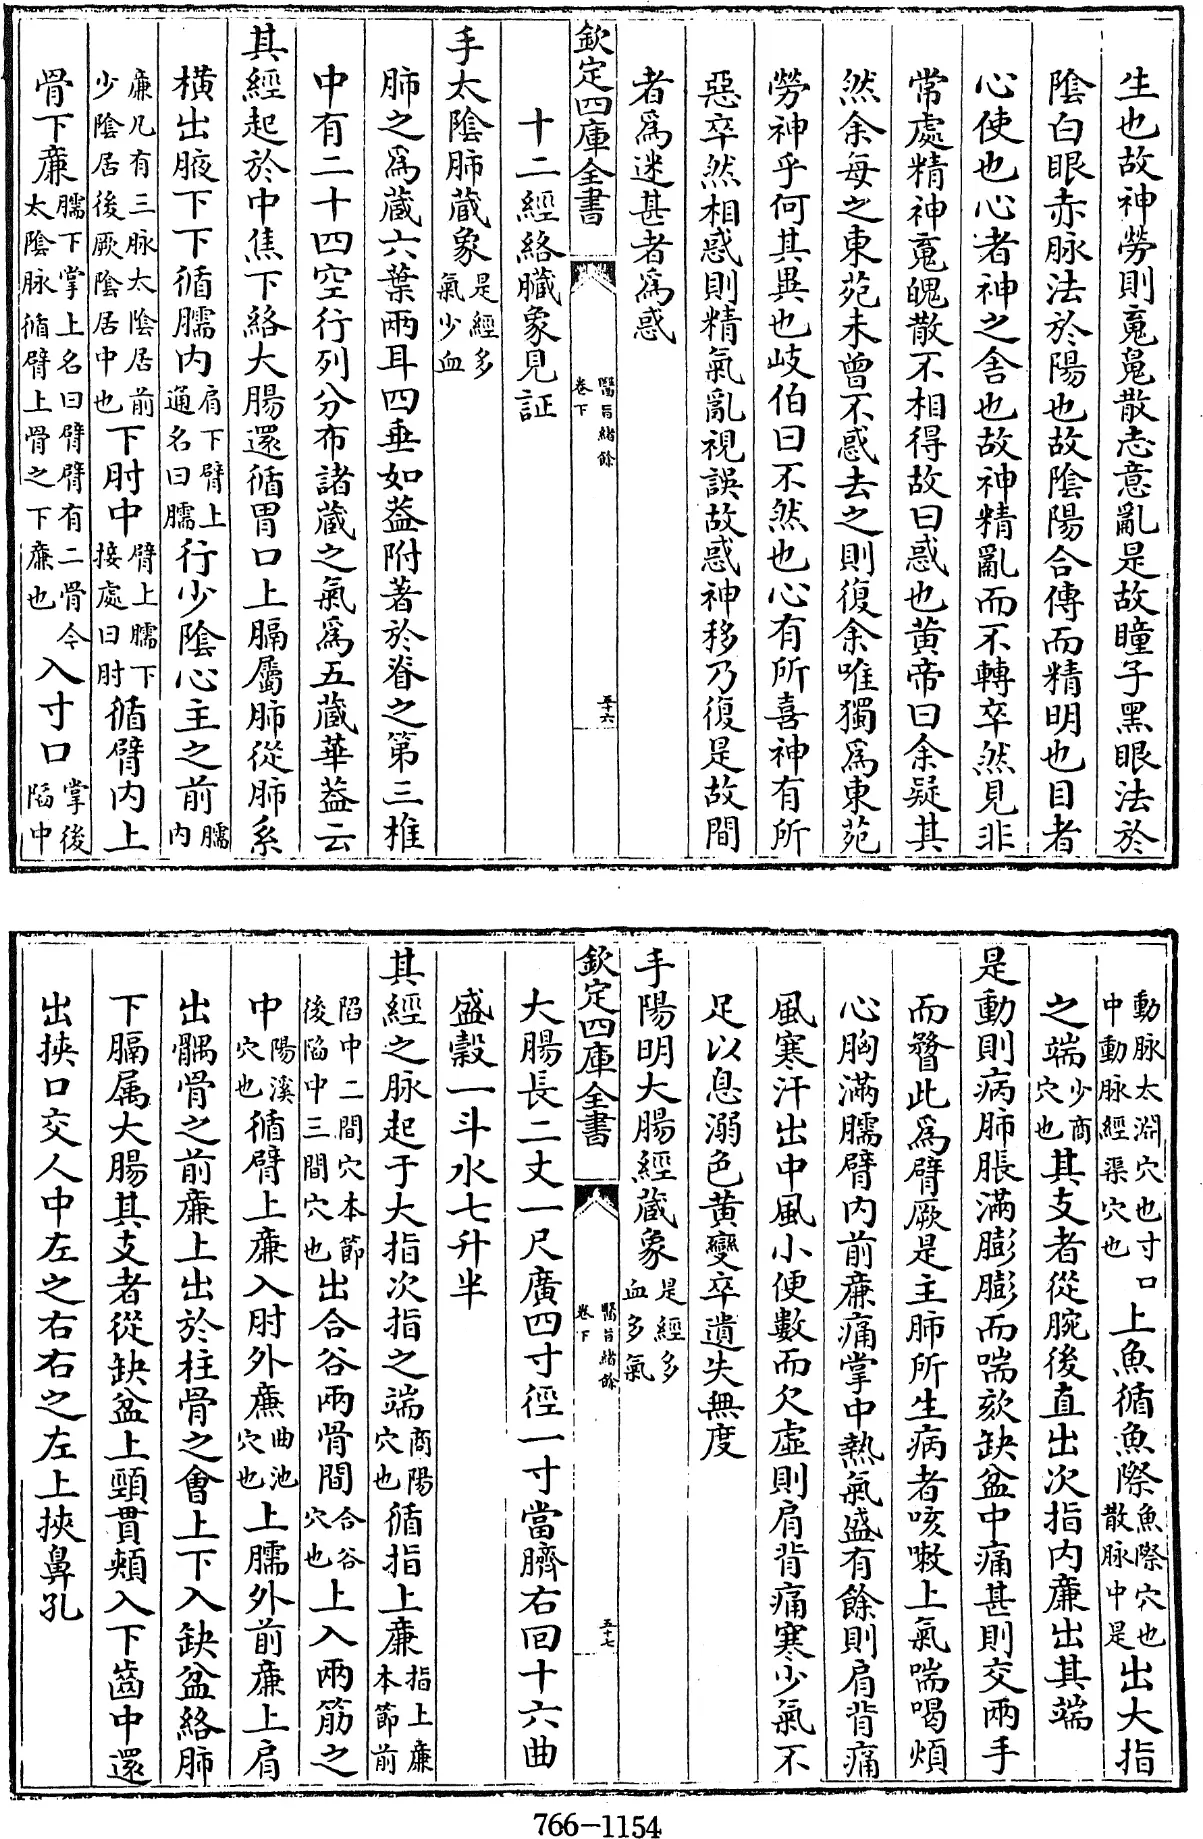 生也故神勞則䰟魄散志意亂是故瞳子黑眼法於
陰白眼赤脉法於陽也故陰陽合傳而精明也目者
心使也心者神之舍也故神精亂而不轉卒然見非
常處精神䰟魄散不相得故曰惑也黄帝曰余疑其
然余每之東苑未曾不惑去之則復余唯獨爲東苑
勞神乎何其異也岐伯曰不然也心有所喜神有所
惡卒然相惑則精氣亂視誤故惑神移乃復是故間
者爲迷甚者爲惑
欽定四庫全書
醫旨緒餘
卷下
五十六
十二經絡臓象見証
手太陰肺蔵象是經多氣少血
肺之爲蔵六葉兩耳四垂如葢附著於脊之第三椎
中有二十四空行列分布諸蔵之氣爲五蔵華葢云
其經起於中焦下絡大腸還循胃口上膈屬肺從肺系
横出腋下下循臑内肩下臂上通名曰臑行少陰心主之前臑内
廉凡有三脉太陰居前少陰居後厥陰居中也下肘中臂上臑下接處曰肘循臂内上
骨下廉臑下掌上名曰臂臂有二骨今太陰脉循臂上骨之下廉也入寸口掌後陷中
動脉太淵穴也寸口中動脉經渠穴也上魚循魚際魚際穴也散脉中是出大指
之端少商穴也其支者從腕後直出次指内廉出其端
是動則病肺脹滿膨膨而喘欬缺盆中痛甚則交兩手
而瞀此爲臂厥是主肺所生病者咳嗽上氣喘喝煩
心胸滿臑臂内前廉痛掌中熱氣盛有餘則肩背痛
風寒汗出中風小便數而欠虛則肩背痛寒少氣不
足以息溺色黄變卒遺失無度
手陽明大腸經蔵象是經多血多氣
欽定四庫全書
醫旨緒餘
卷下
五十七
大腸長二丈一尺廣四寸徑一寸當臍右回十六曲
盛穀一斗水七升半
其經之脉起于大指次指之端商陽穴也循指上廉指上廉本節前
陷中二間穴本節後陷中三間穴也出合谷兩骨間合谷穴也上入兩筋之
中陽溪穴也循臂上廉入肘外廉曲池穴也上臑外前廉上肩
出髃骨之前廉上出於柱骨之會上下入缺盆絡肺
下膈属大腸其支者從缺盆上頸貫頰入下齒中還
出挾口交人中左之右右之左上挾鼻孔
766-1154